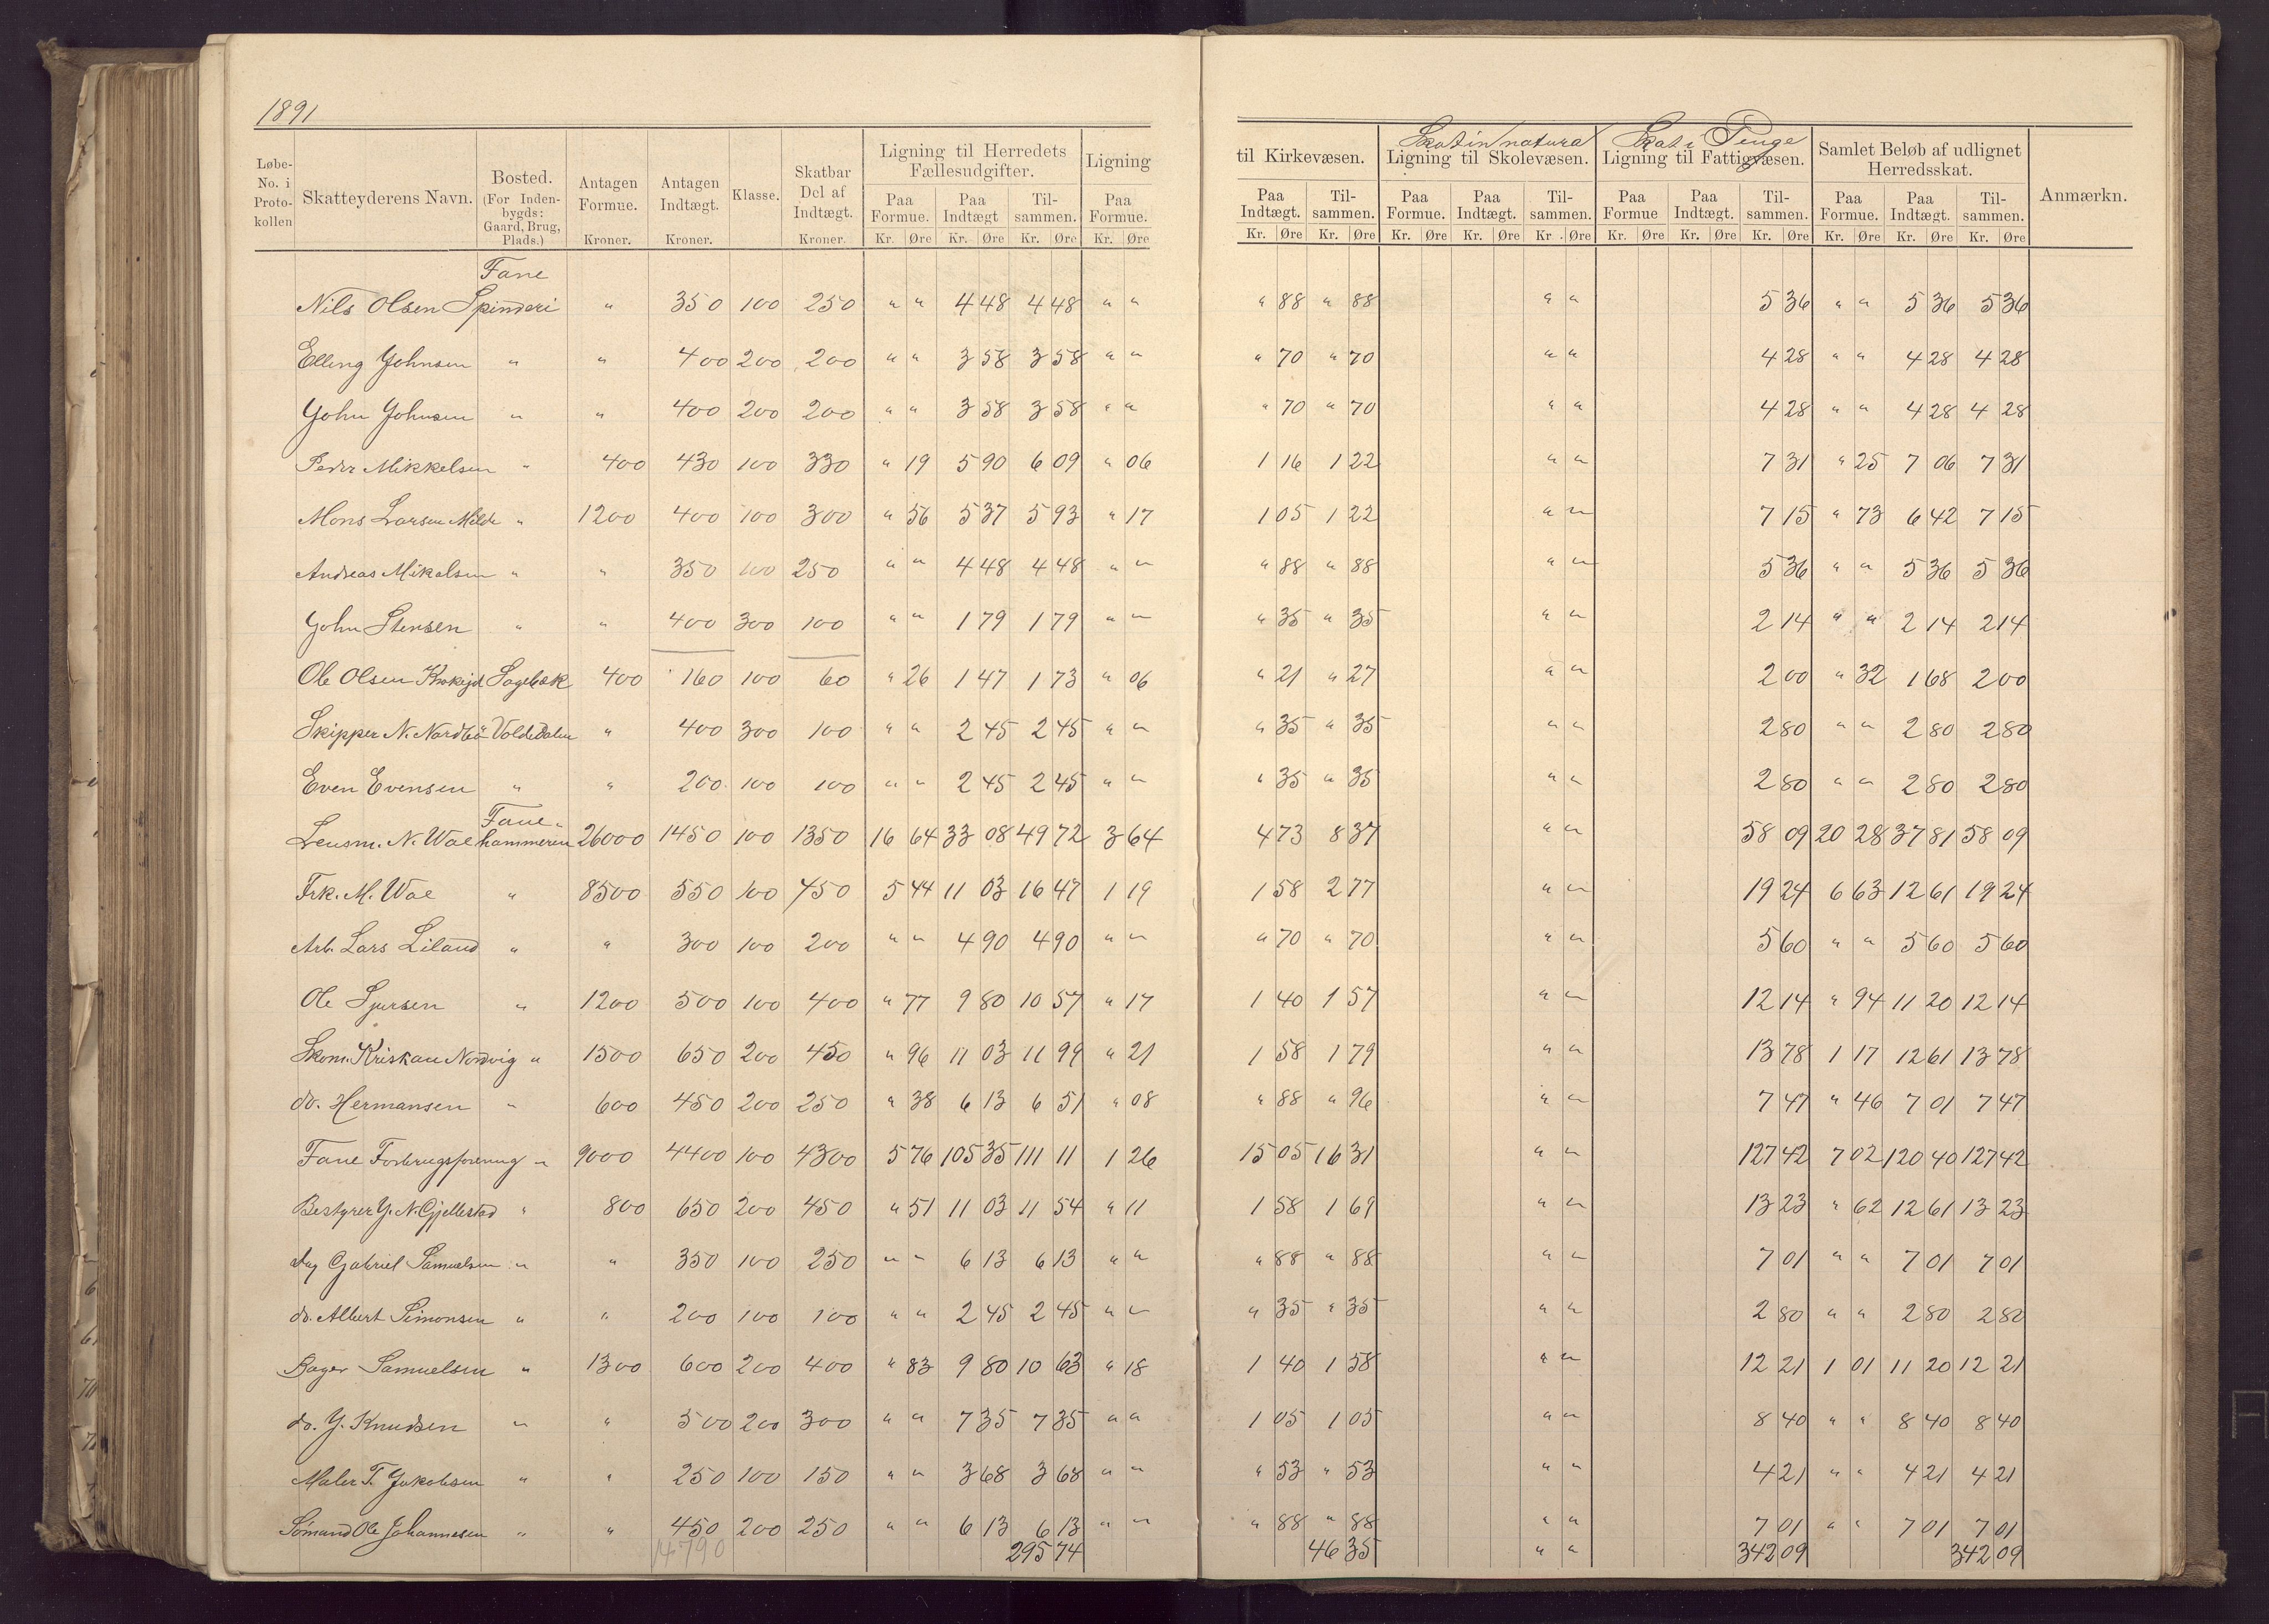 1891
Løbe-No. i Proto-kollen | Skatteyderens Navn. | Bosted. (For Inden-bygds: Gaard, Brug, Plads.) | Antagen Formue. Kroner. | Antagen Indtægt. Kroner. | Klasse. | Skatbar Del af Indtægt. Kroner. | Ligning til Herredets Fællesudgifter. Paa Formue. Kr. Øre | Paa Indtægt Kr. Øre | Til-sammen. Kr. Øre | Ligning Paa Formue. Kr. Øre | til Kirkevæsen. Paa Indtægt. Kr. Øre | Til-sammen. Kr. Øre | Skat in natura Ligning til Skolevæsen. Paa Formue. Kr. Øre | Paa Indtægt. Kr. Øre | Til-sammen. Kr. Øre | Skat i Penge Ligning til Fattigvæsen. Paa Formue Kr. Øre | Paa Indtægt. Kr. Øre | Til-sammen. Kr. Øre | Samlet Beløb af udlignet Herredsskat. Paa Formue. Kr. Øre | Paa Indtægt. Kr. Øre | Til-sammen. Kr. Øre | Anmærkn.
Fane
Nils Olsen Spinderi " 350 100 250 " " 4 48 4 48 " " " 88 " 88 " " 5 36 " " 5 36 5 36
Elling Johnsen " " 400 200 200 " " 3 58 3 58 " " " 70 " 70 " " 4 28 " " 4 28 4 28
John Johnsen " " 400 200 200 " " 3 58 3 58 " " " 70 " 70 " " 4 28 " " 4 28 4 28
Peder Mikkelsen " 400 430 100 330 " 19 5 90 6 09 " 06 1 16 1 22 " " 7 31 " 25 7 06 7 31
Mons Larsen Milde " 1200 400 100 300 " 56 5 37 5 93 " 17 1 05 1 22 " " 7 15 " 73 6 42 7 15
Andreas Mikalsen " " 350 100 250 " " 4 48 4 48 " " " 88 " 88 " " 5 36 " " 5 36 5 36
John Stensen " " 400 300 100 " " 1 79 1 79 " " " 35 " 35 " " 2 14 " " 2 14 2 14
Ole Olsen Sagebæk 400 160 100 60 " 26 1 47 1 73 " 06 " 21 " 27 " " 2 00 " 32 1 68 2 00
Skipper N. Nordbö Voldedalen " 400 300 100 " " 2 45 2 45 " " " 35 " 35 " " 2 80 " " 2 80 2 80
Even Evensen " " 200 100 100 " " 2 45 2 45 " " " 35 " 35 " " 2 80 " " 2 80 2 80
Fane-
Lensm. N. Woe hammeren 26000 1450 100 1350 16 64 33 08 49 72 3 64 4 73 8 37 " " 58 09 20 28 37 81 58 09
Frk. M. Woe " 8500 550 100 450 5 44 11 03 16 47 1 19 1 58 2 77 " " 19 24 6 63 12 61 19 24
Arb. Lars Liland " " 300 100 200 " " 4 90 4 90 " " " 70 " 70 " " 5 60 " " 5 60 5 60
Ole Sjursen " 1200 500 100 400 " 77 9 80 10 57 " 17 1 40 1 57 " " 12 14 " 94 11 20 12 14
Skom. Kriskan Nordvig " 1500 650 200 450 " 96 11 03 11 99 " 21 1 58 1 79 " " 13 78 1 17 12 61 13 78
do. Hermansen " 600 450 200 250 " 38 6 13 6 51 " 08 " 88 " 96 " " 7 47 " 46 7 01 7 47
Fane Forbrugsforening " 9000 4400 100 4300 5 76 105 35 111 11 1 26 15 05 16 31 " " 127 42 7 02 120 40 127 42
Bestyrer J. N. Gjellestad " 800 650 200 450 " 51 11 03 11 54 " 11 1 58 1 69 " " 13 23 " 62 12 61 13 23
Gabriel Samuelsen " " 350 100 250 " " 6 13 6 13 " " " 88 " 88 " " 7 01 " " 7 01 7 01
do. Albert Simonsen " " 200 100 100 " " 2 45 2 45 " " " 35 " 35 " " 2 80 " " 2 80 2 80
Bager Samuelsen " 1300 600 200 400 " 83 9 80 10 63 " 18 1 40 1 58 " " 12 21 1 01 11 20 12 21
do. J. Knudsen " " 500 200 300 " " 7 35 7 35 " " 1 05 1 05 " " 8 40 " " 8 40 8 40
Maler T. Jakobsen " " 250 100 150 " " 3 68 3 68 " " " 53 " 53 " " 4 21 " " 4 21 4 21
Sömand Ole Johannesen " " 450 200 250 " " 6 13 6 13 " " " 88 " 88 " " 7 01 " " 7 01 7 01
14790 295 74 46 35 " " 342 09 342 09